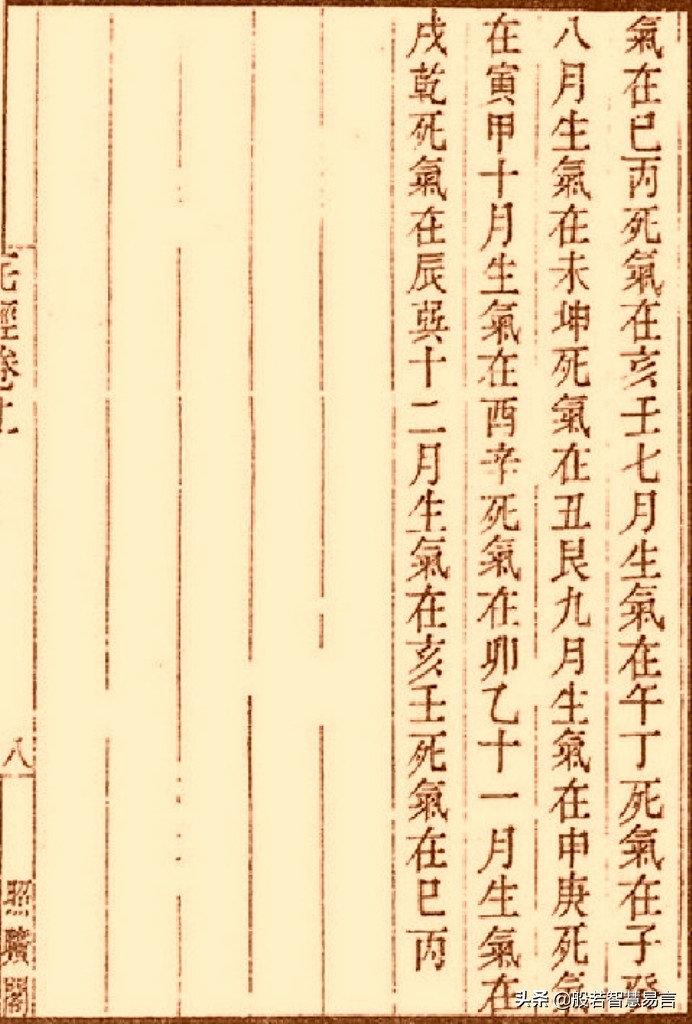 氣在巳丙死氣在亥壬七月生氣在午丁死氣在子癸
八月生氣在未坤死氣在丑艮九月生氣在申庚死氣
在寅甲十月生氣在酉辛死氣在卯乙十一月生氣在
戌乾死氣在辰巽十二月生氣在亥壬死氣在巳丙
經卷
八
照曠閣
头条 @般若智慧易言